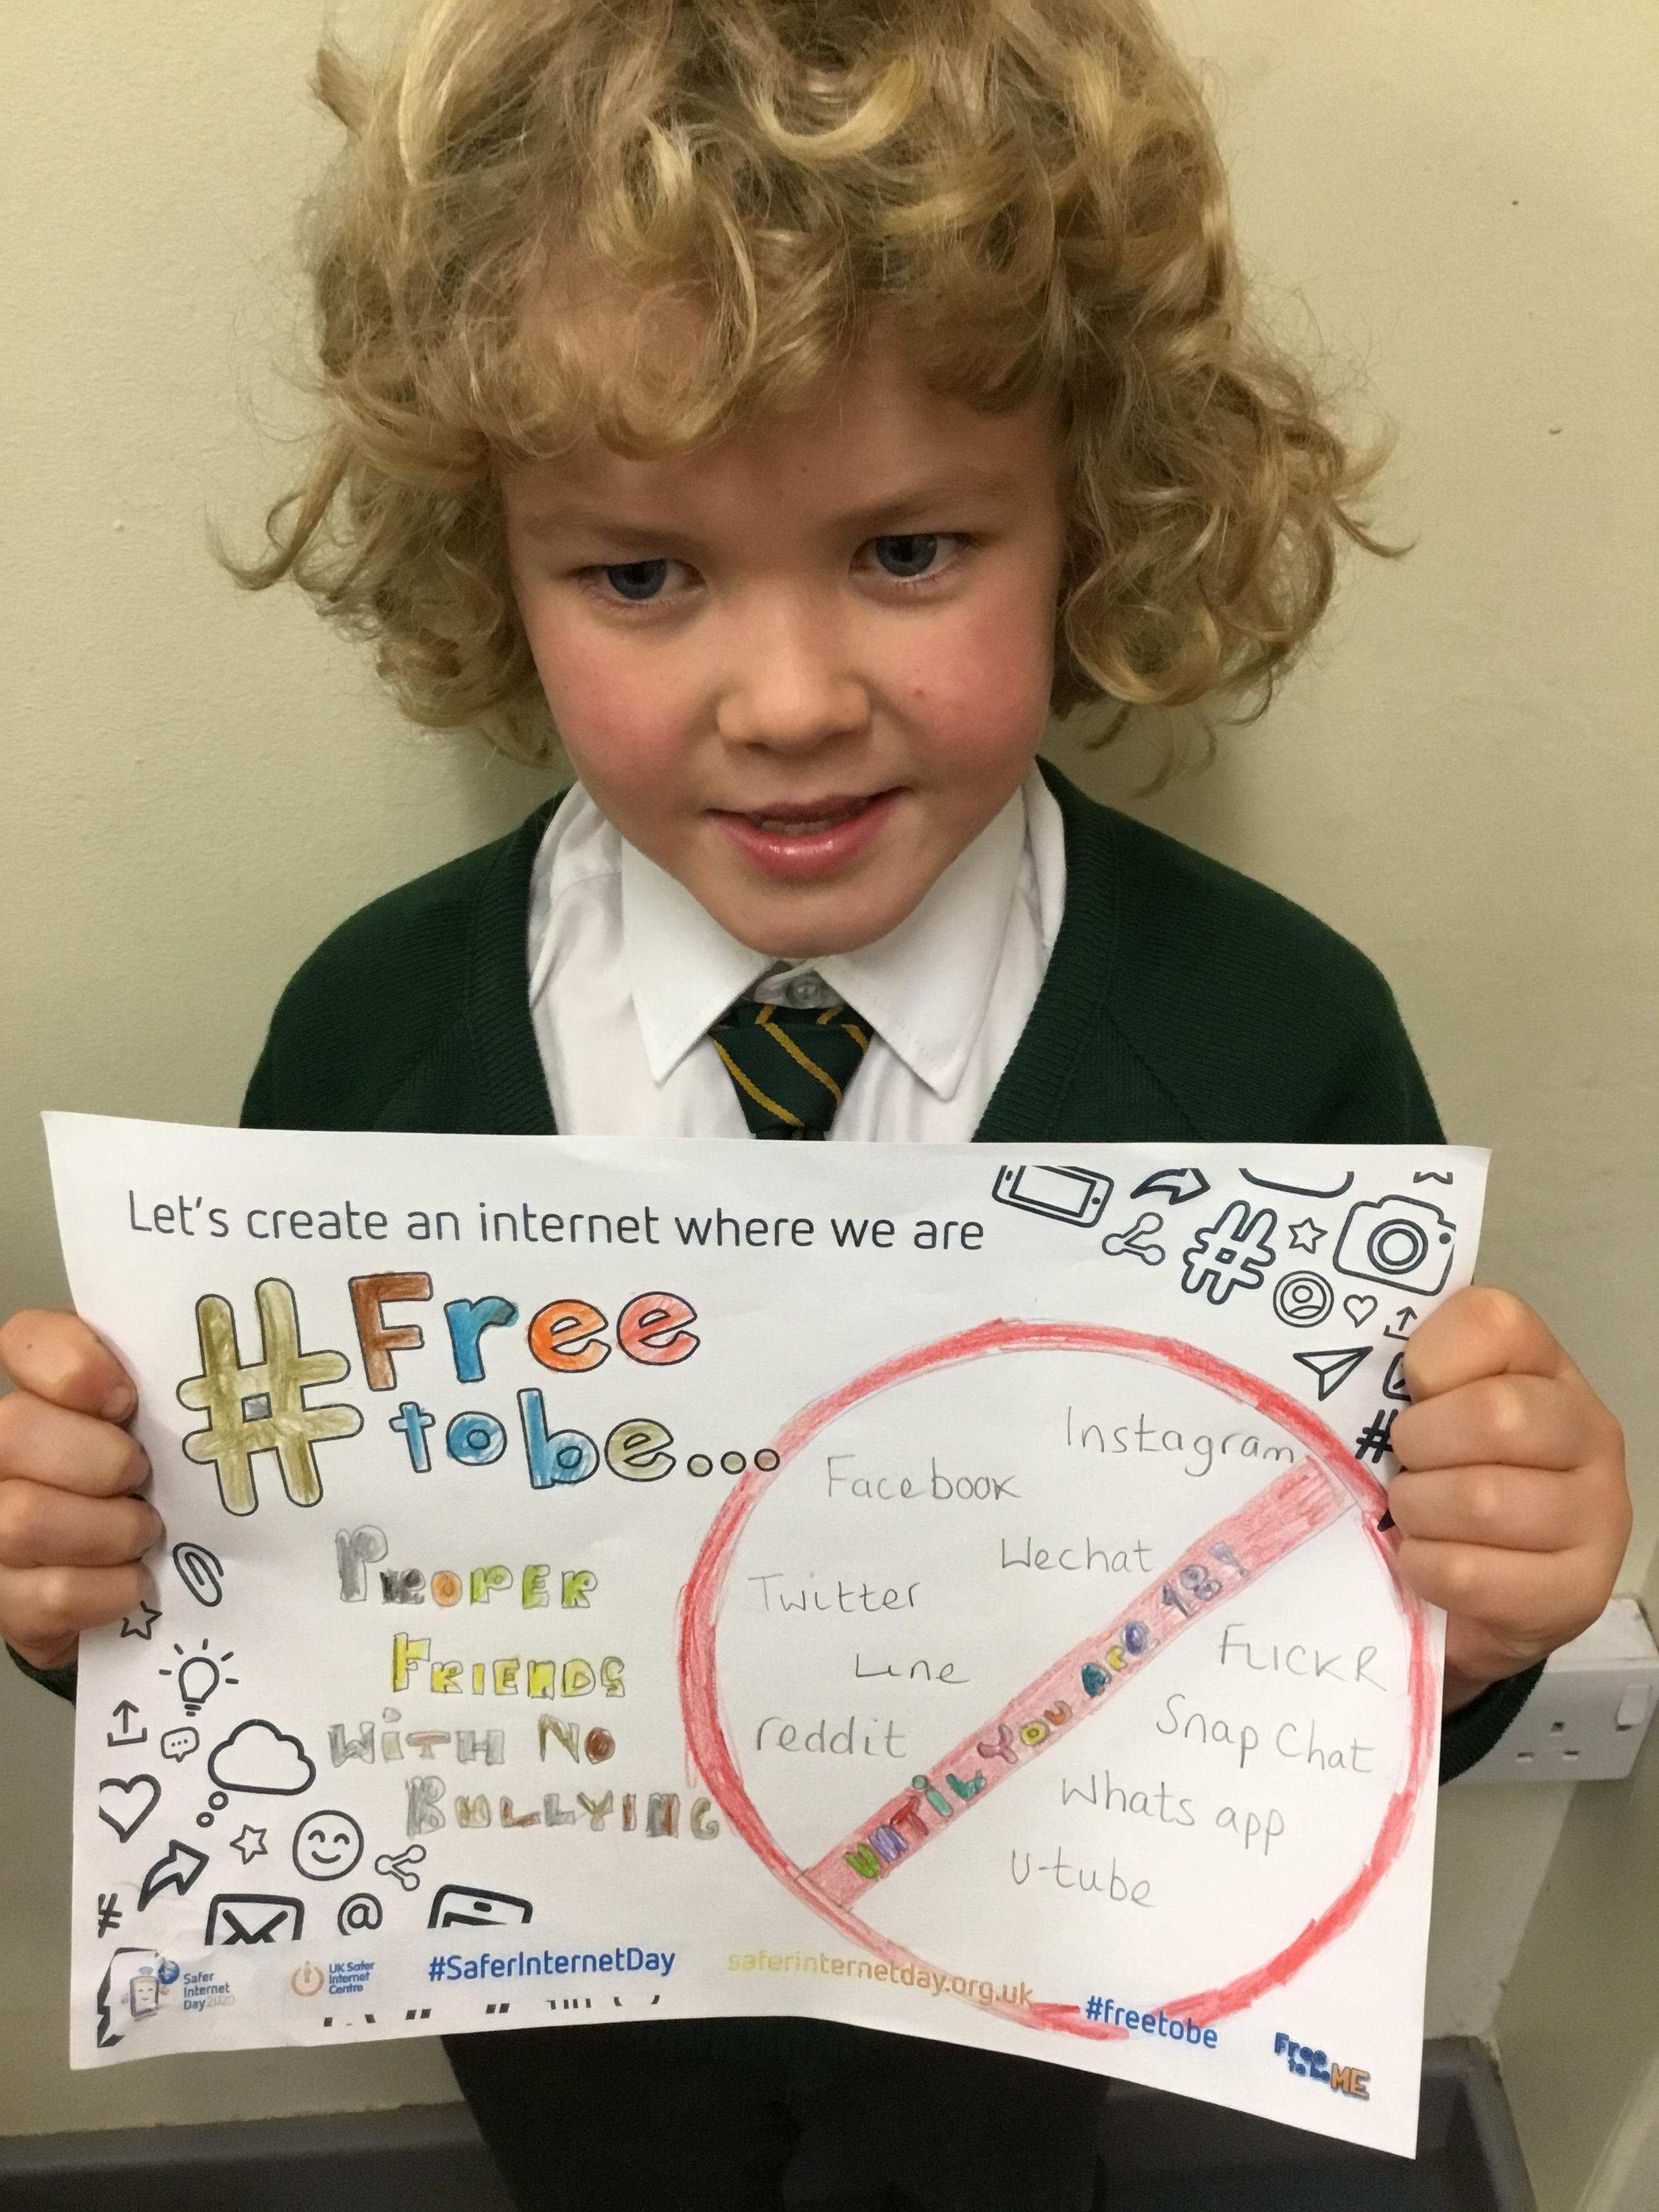 Let's create an internet where we are
#Free
to be...
PROPER
FRIENDS
WITH NO
BULLYING
Instagram
Facebook
Wechat
Twitter
Line
reddit
UNTIL YOU ARE 18!
FLICKR
Snap Chat
Whats app
U-tube
Safer
Internet
Day 2020
UK Safer
Internet
Centre
#SaferInternetDay
saferinternetday.org.uk
#freetobe
Free
to be ME